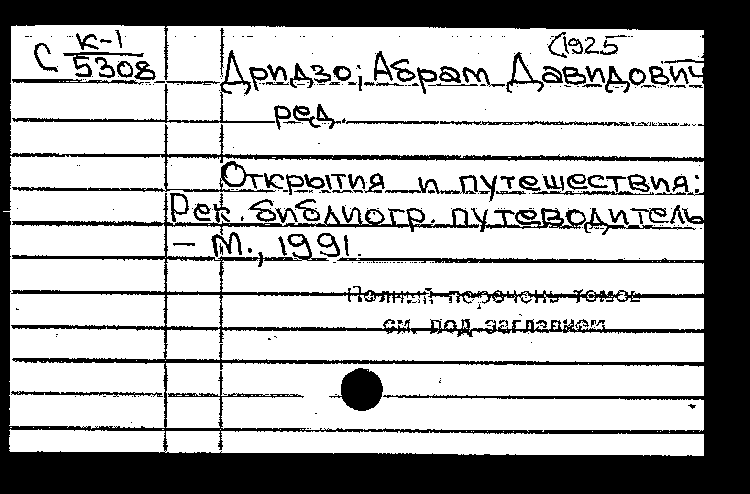 С К-1
5308
(1925
Дридзо, Абрам Давидович
ред.
Открытия и путешествия:
Рек. библиогр. путеводитель
– М., 1991.
Полный перечень томов
см. под заглавием